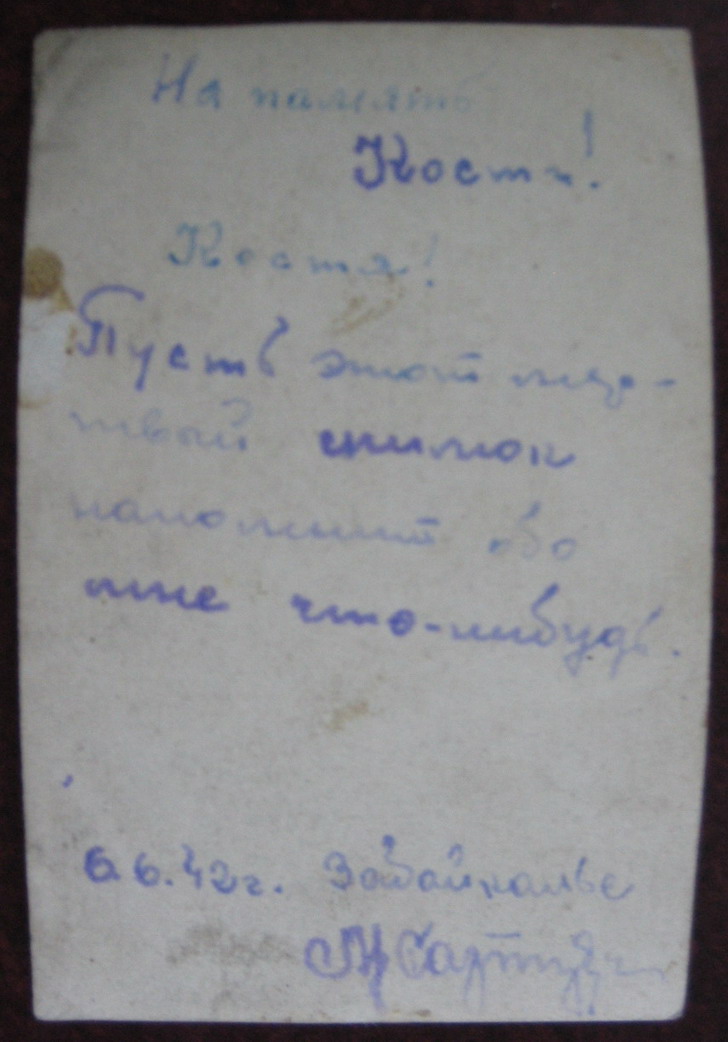 На память
Кости!
Костя!
Пусть этот мер-
твый снимок
напомнит обо
мне что-нибудь.
6.6.42г. Забайкалье